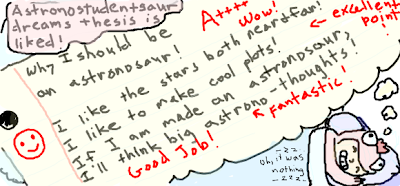 Astronostudentsaur
dreams thesis is
liked!
A++++
Wow!
excellent
point
Why I should be
an astronosaur!
I like the stars both near & far!
I like to make cool plots!
If I am made an astronosaur,
I'll think big astrono-thoughts!
Fantastic!
Good Job!
-zz-
oh, it was
nothing
-zzz-